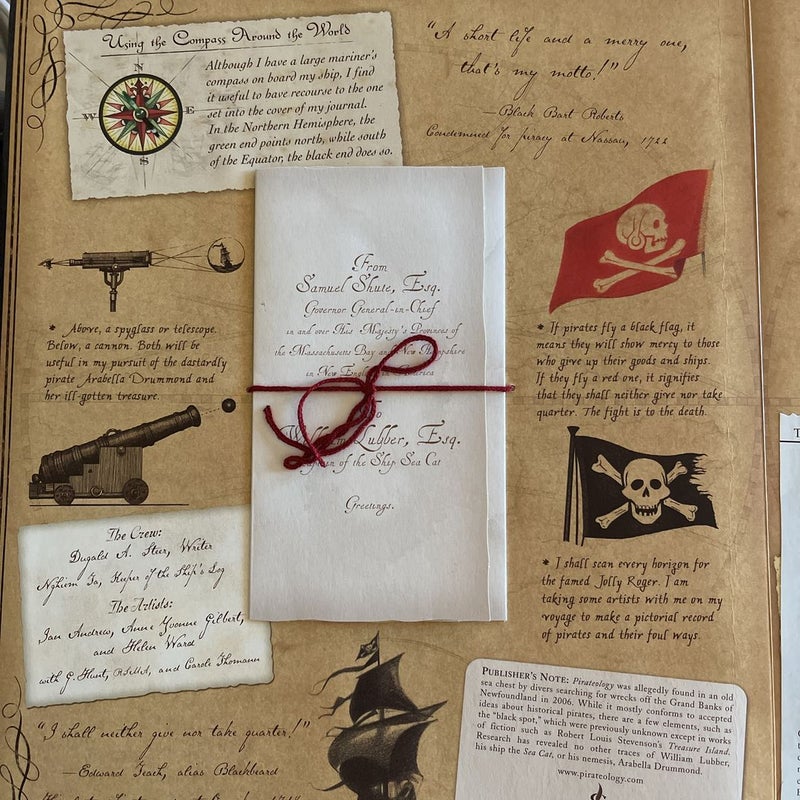 Using the Compass Around the World
Although I have a large mariner's
compass on board my ship, I find
it useful to have recourse to the one
set into the cover of my journal.
In the Northern Hemisphere, the
green end points north, while south
of the Equator, the black end does so.
N
W
E
S
"A short life and a merry one,
that's my motto!"
—Black Bart Roberts
Condemned for piracy at Nassau, 1722
* Above, a spyglass or telescope.
Below, a cannon. Both will be
useful in my pursuit of the dastardly
pirate Arabella Drummond and
her ill-gotten treasure.
From
Samuel Shute, Esq.
Governor General-in-Chief
in and over His Majesty's Provinces of
the Massachusetts Bay and New Hampshire
in New England in America
To
William Lubber, Esq.
Captain of the Ship Sea Cat
Greetings.
* If pirates fly a black flag, it
means they will show mercy to those
who give up their goods and ships.
If they fly a red one, it signifies
that they shall neither give nor take
quarter. The fight is to the death.
* I shall scan every horizon for
the famed Jolly Roger. I am
taking some artists with me on my
voyage to make a pictorial record
of pirates and their foul ways.
The Crew:
Dugald A. Steer, Writer
Nghiem Ta, Keeper of the Ship's Log
The Artists:
Ian Andrew, Anne Yvonne Gilbert,
and Helen Ward
with G. Hunt, and Carole Thomann
"I shall neither give nor take quarter!"
—Edward Teach, alias Blackbeard
PUBLISHER'S NOTE: Pirateology was allegedly found in an old
sea chest by divers searching for wrecks off the Grand Banks of
Newfoundland in 2006. While it mostly conforms to accepted
ideas about historical pirates, there are a few elements, such as
the "black spot," which were previously unknown except in works
of fiction such as Robert Louis Stevenson's Treasure Island.
Research has revealed no other traces of William Lubber,
his ship the Sea Cat, or his nemesis, Arabella Drummond.
www.pirateology.com